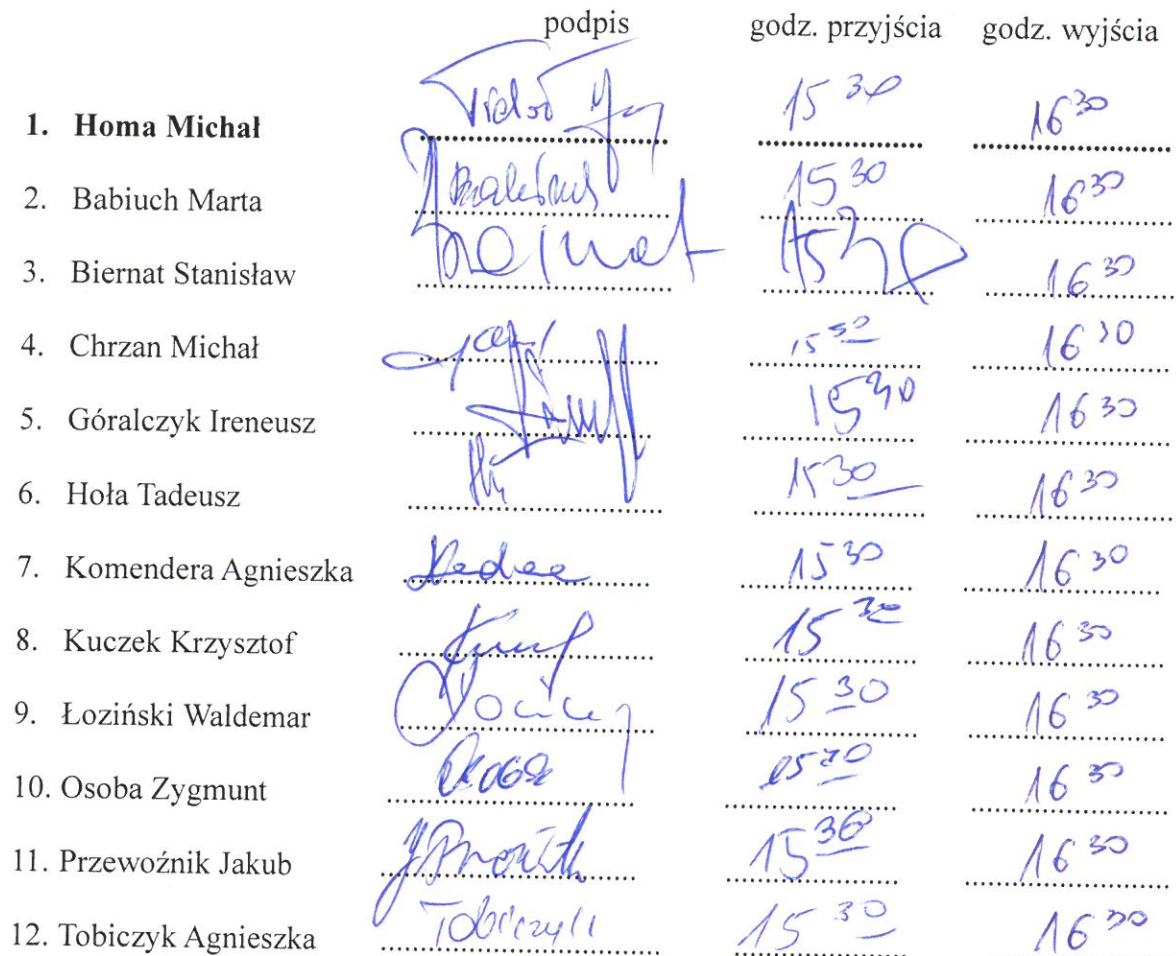 podpis godz. przyjścia godz. wyjścia
1. Homa Michał 15 30 16 30
2. Babiuch Marta 15 30 16 30
3. Biernat Stanisław 15 30 16 30
4. Chrzan Michał 15 30 16 30
5. Góralczyk Ireneusz 15 30 16 30
6. Hoła Tadeusz 15 30 16 30
7. Komendera Agnieszka 15 30 16 30
8. Kuczek Krzysztof 15 30 16 30
9. Łoziński Waldemar 15 30 16 30
10. Osoba Zygmunt 15 30 16 30
11. Przewoźnik Jakub 15 30 16 30
12. Tobiczyk Agnieszka Tobiczyk 15 30 16 30